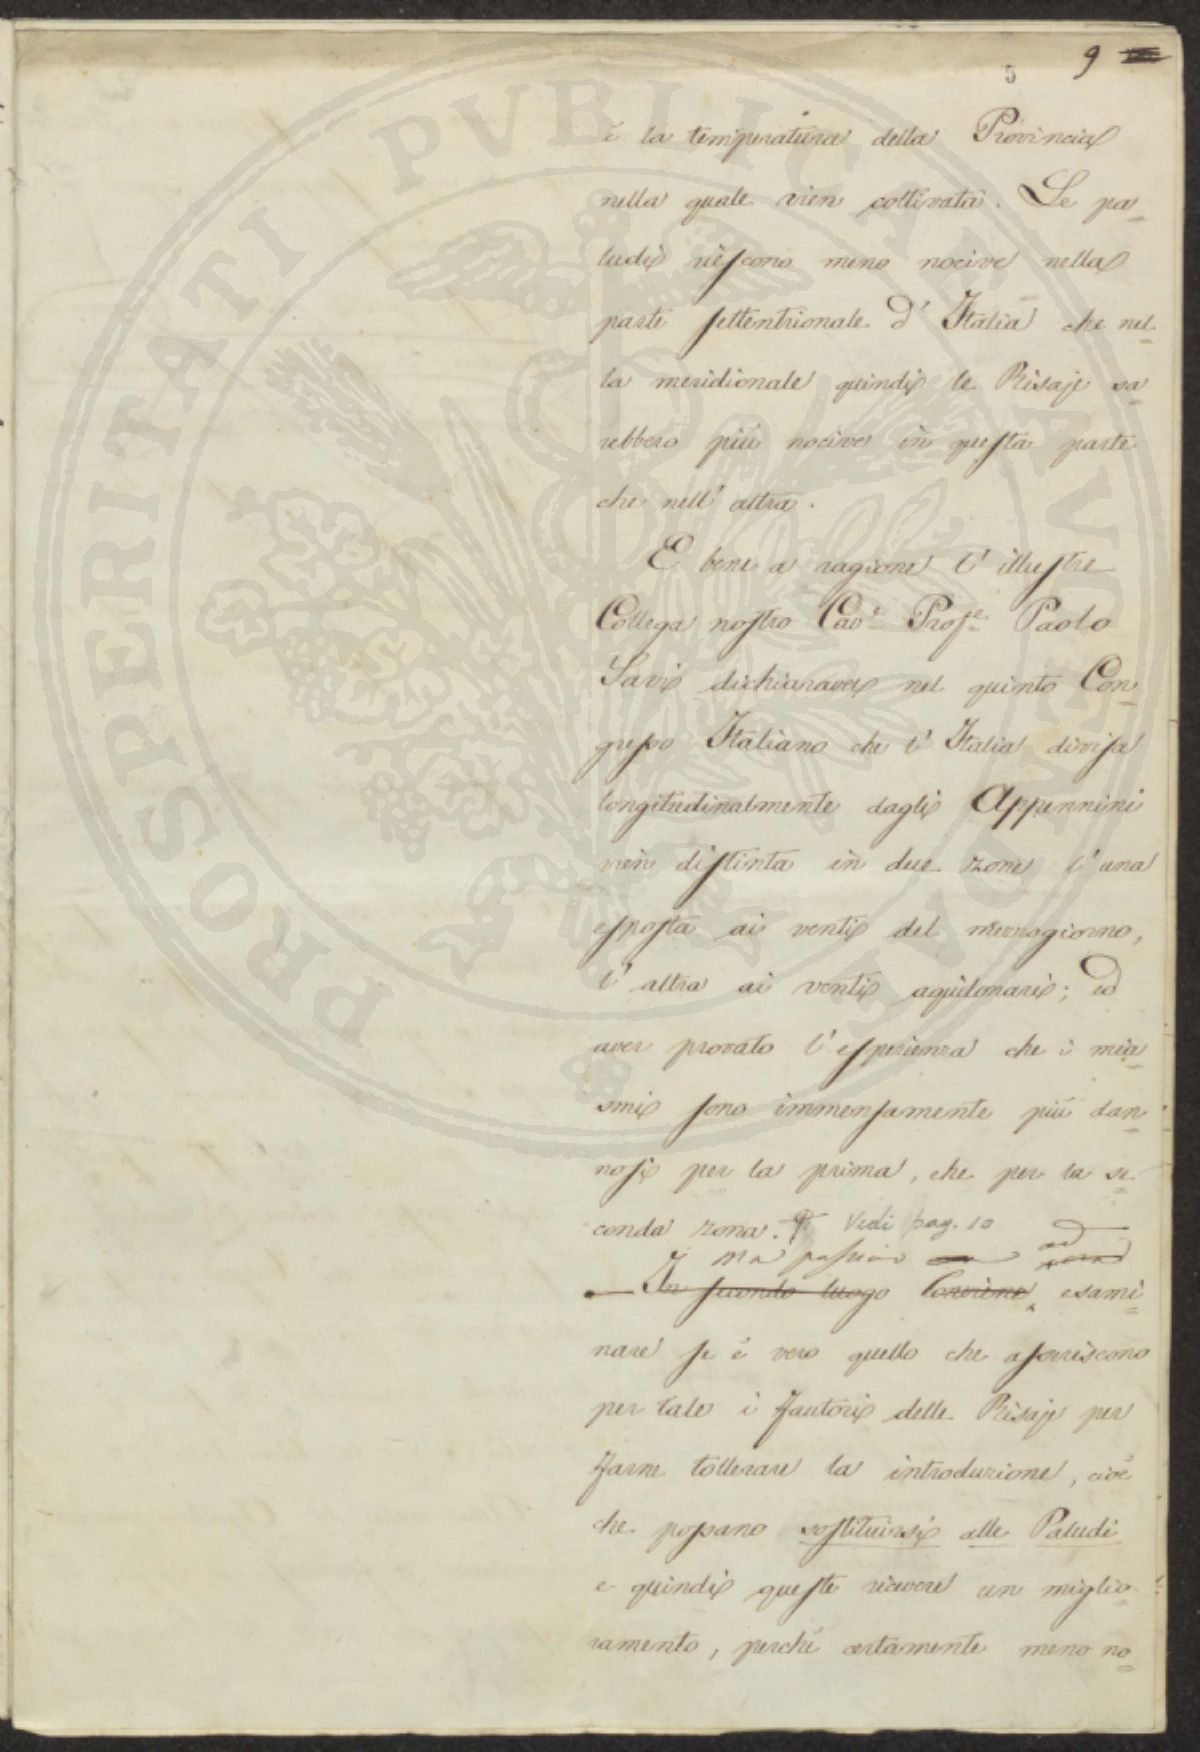 5 9
è la temperatura della Provincia
nella quale vien coltivata. Le pa=
ludi riescono meno nocive nella
parte settentrionale d'Italia che nel=
la meridionale quindi le Risaje sa
rebbero più nocive in questa parte
che nell'altra.
E bene a ragione l'illustre
Collega nostro Cav.e Prof.e Paolo
Savi dichiarava nel quinto Con=
gresso Italiano che l'Italia divisa
longitudinalmente dagli Appennini
vien distinta in due zone l'una
esposta ai venti del mezzogiorno,
l'altra ai venti aquilonari; ed
aver provato l'esperienza che i mia=
smi sono immensamente più dan=
nosi per la prima, che per la se=
conda zona. Vedi pag. 10
Ma passiamo ad
In secondo luogo Conviene esami=
nare se è vero quello che asseriscono
per tale i fautori delle Risaje per
farne tollerare la introduzione, cioè
che possano sostituirsi alle Paludi
e quindi queste ricevere un miglio=
ramento, perché certamente meno no=
PROSPERITATI PVBLICAE AVGENDAE